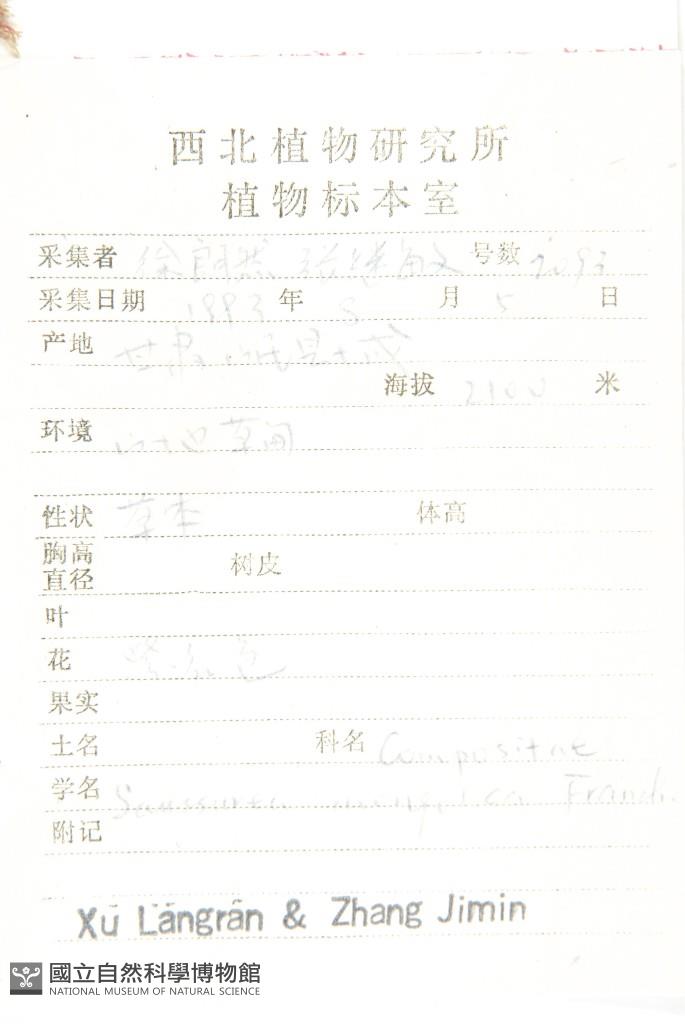 西北植物研究所
植物标本室
采集者 徐朗然 张继敏 号数 2093
采集日期 1993 年 8 月 5 日
产地 甘肃
海拔 2100 米
环境 山地草间
性状 草本 体高
胸高直径 树皮
叶
花 紫红色
果实
土名 科名 Compositae
学名 Saussurea Franch.
附记
Xú Lǎngrán & Zhang Jimin
國立自然科學博物館
NATIONAL MUSEUM OF NATURAL SCIENCE